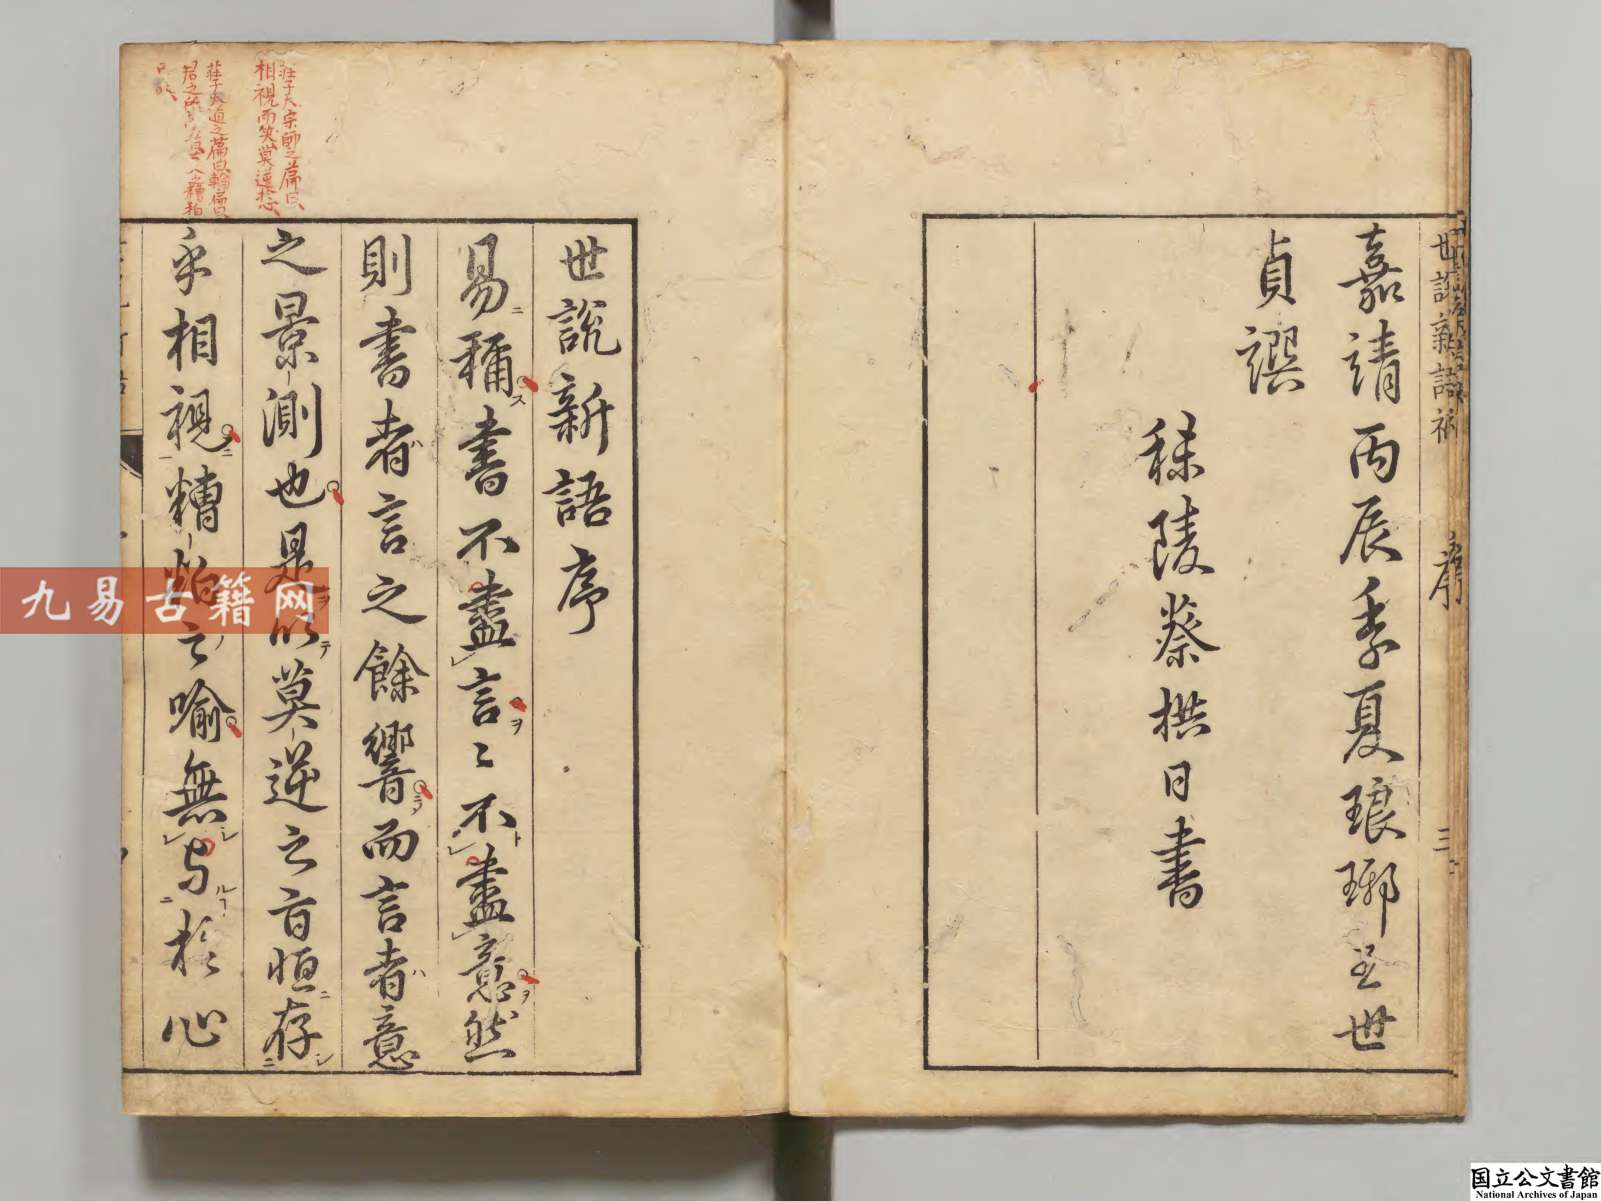 世說新語補
序
三
嘉靖丙辰季夏琅琊王世
貞譔
秣陵蔡拱日書
世說新語序
易稱書不盡言〻不盡意然
則書者言之餘響而言者意
之景測也是以莫逆之旨恒存
乎相視糟粕之喻無與於心
莊子大宗師之篇曰
相視而笑莫逆於心
莊子天道之篇曰輪扁曰
九易古籍网
国立公文書館
National Archives of Japan